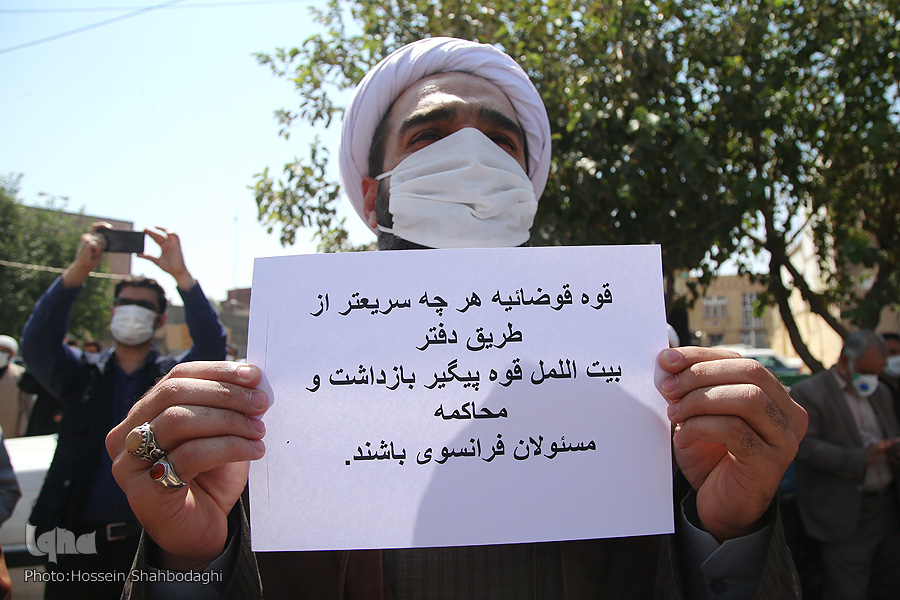 قوه قوضائیه هر چه سریعتر از
طریق دفتر
بیت اللمل قوه پیگیر بازداشت و
محاکمه
مسئولان فرانسوی باشند.
iqna
Photo:Hossein Shahbodaghi